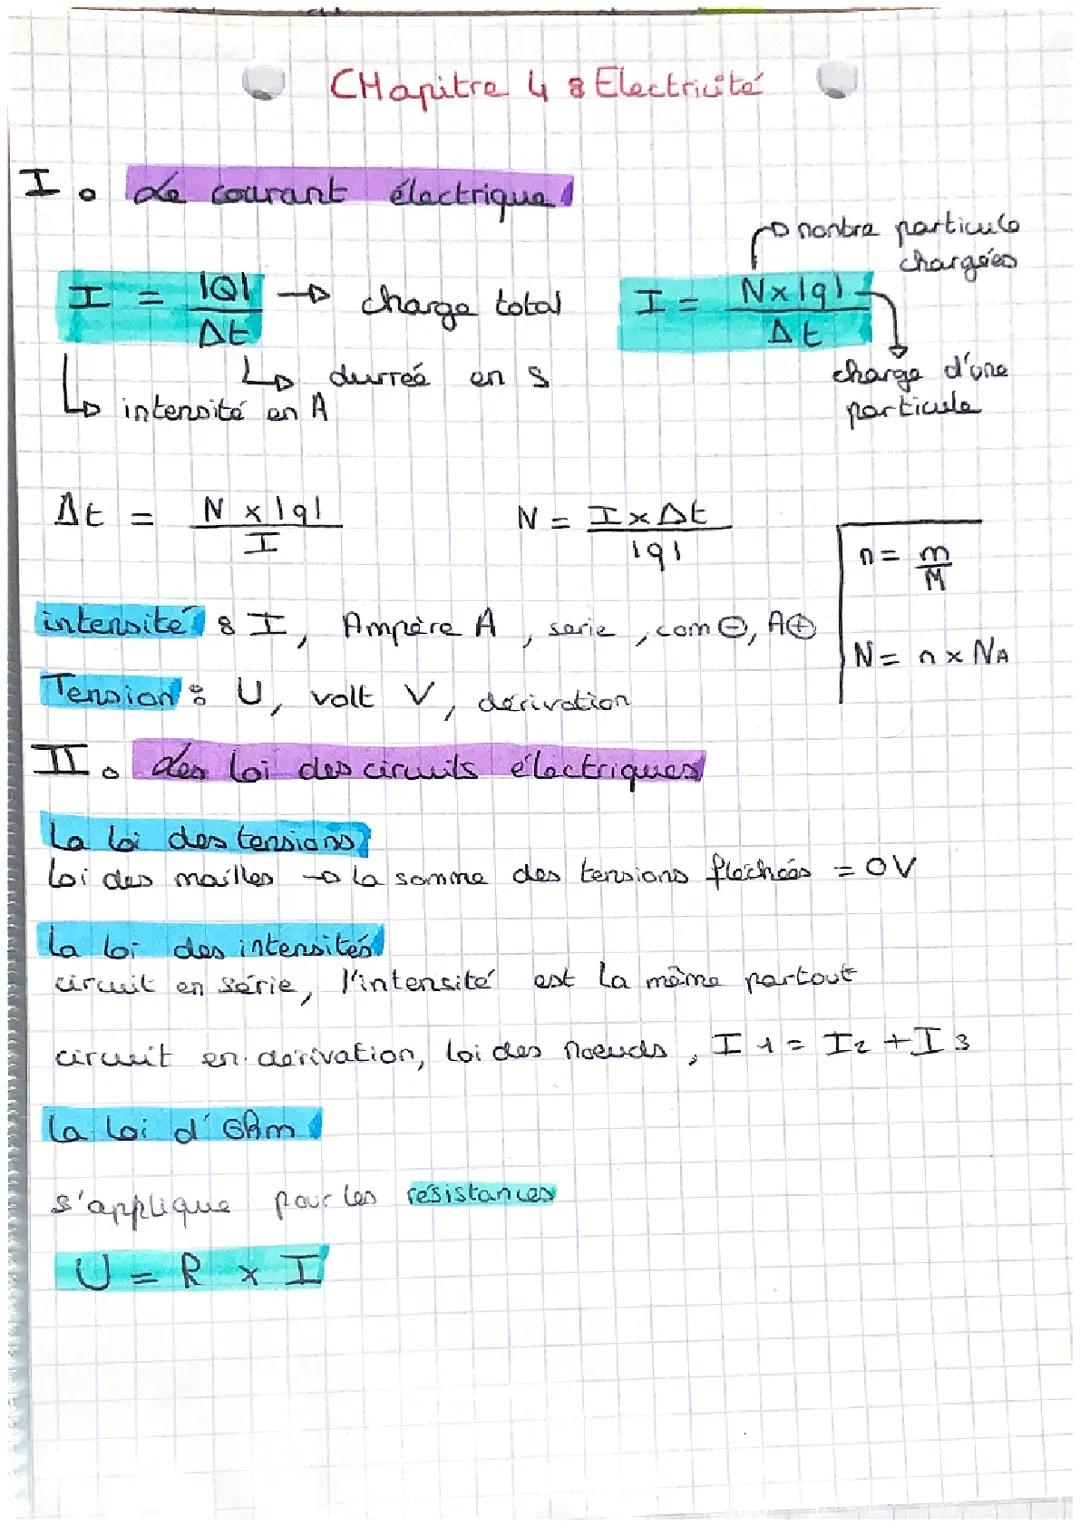 CHapitre 4 : Electricité
I. Le courant électrique
nombre particule
chargées
I = |Q| / Δt → charge total
I = N×|q| / Δt
durreé en s
intensité en A
charge d'une
particule
Δt = N×|q| / I
N = I×Δt / |q|
n = m/M
intensité : I, Ampère A, serie, com⊖, A⊕
N = n × NA
Tension : U, volt V, dérivation
II. des loi des circuits électriques
La loi des tensions
loi des mailles → la somme des tensions flechées = 0V
La loi des intensités
circuit en série, l'intensité est la même partout
circuit en dérivation, loi des noeuds, I1 = I2 + I3
la loi d'Ohm
s'applique pour les resistances
U = R × I